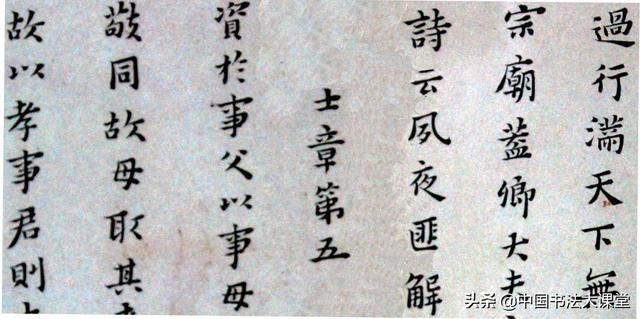 過行滿天下無
宗廟蓋卿大夫
詩云夙夜匪解
士章第五
資於事父以事母
敬同故母取其
故以孝事君則
头条 @中国书法大课堂